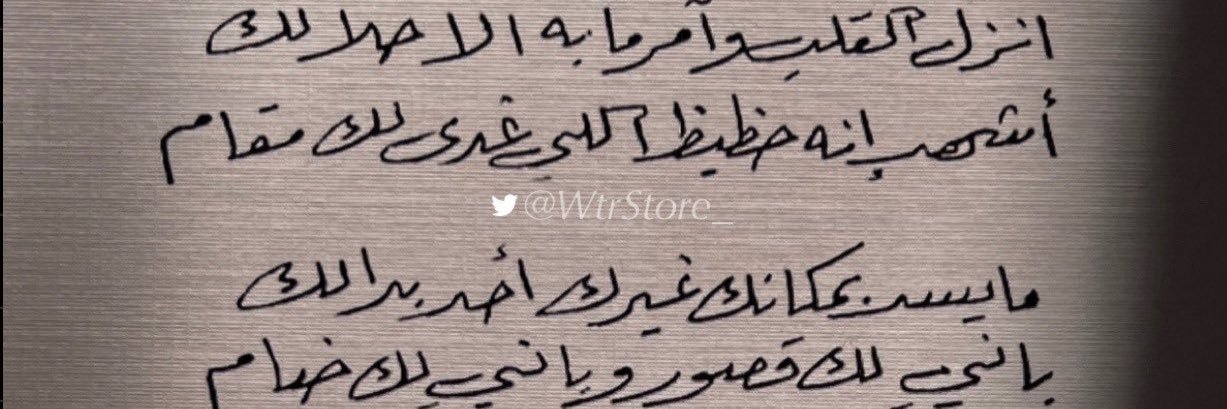 انزل القلب وآمر ما به الا حلالك
أشهد إنه حظيظ اللي غدى لك مقام
@WtrStore_
ما يسد بمكانك غيرك أحد بدالك
باني لك قصور و باني لك خيام